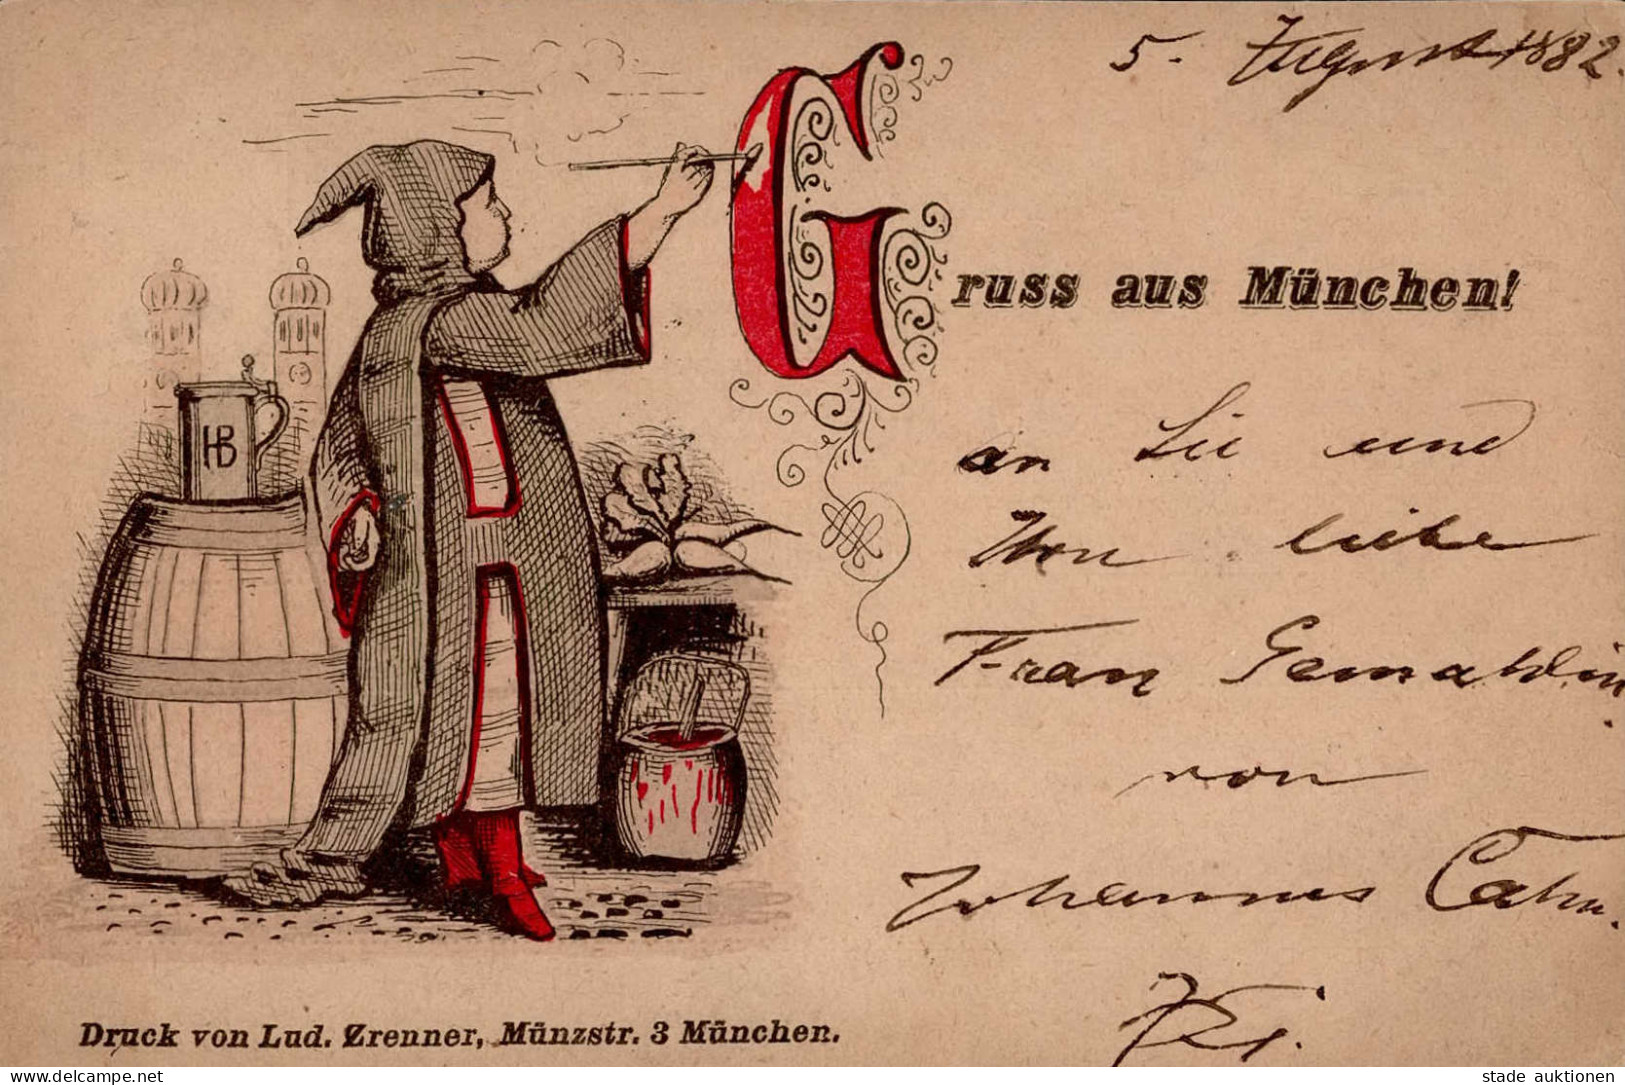 5. August 1882.
Gruss aus München!
an Sie und
Ihre liebe
Frau Gemahlin
von
Johannes
HB
Druck von Lud. Zrenner, Münzstr. 3 München.
delcampe.net
stade auktionen